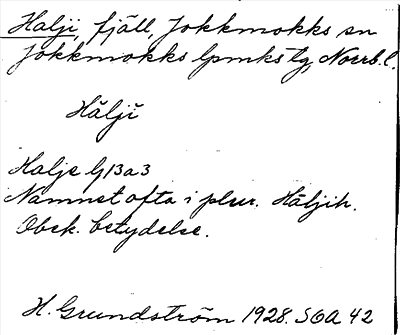 Halji, fjäll, Jokkmokks sn
Jokkmokks lpmks tg, Norrb. l.
Hălji̊
Halje G13a3
Namnet ofta i plur. Hāljih.
Obek. betydelse.
H. Grundström 1928. SOA 42